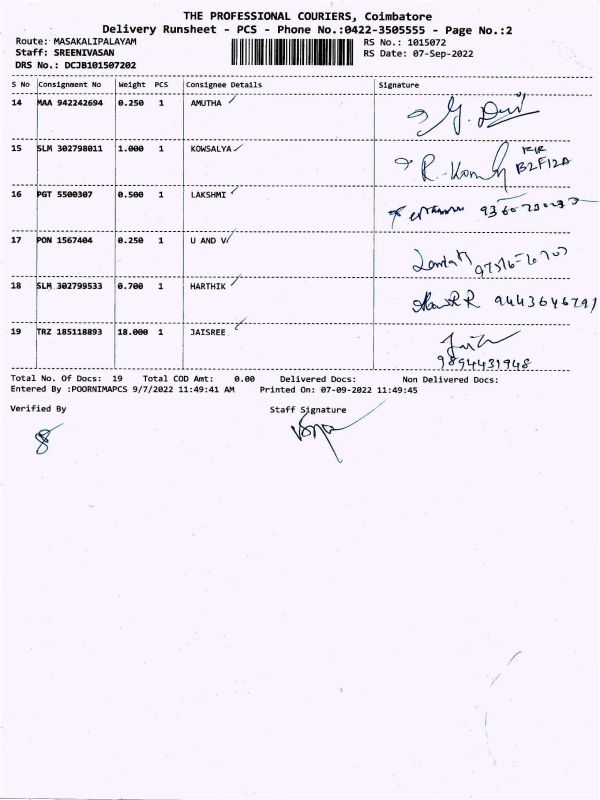 THE PROFESSIONAL COURIERS, Coimbatore
Delivery Runsheet - PCS - Phone No.:0422-3505555 - Page No.:2
Route: MASAKALIPALAYAM RS No.: 1015072
Staff: SREENIVASAN RS Date: 07-Sep-2022
DRS No.: DCJB101507202
S No Consignment No Weight PCS Consignee Details Signature
14 MAA 942242694 0.250 1 AMUTHA
15 SLM 302798011 1.000 1 KOWSALYA B2F12A
16 PGT 5500307 0.500 1 LAKSHMI
17 PON 1567404 0.250 1 U AND V
18 SLM 302799533 0.700 1 HARTHIK
19 TRZ 185118893 18.000 1 JAISREE
9894431948
Total No. Of Docs: 19 Total COD Amt: 0.00 Delivered Docs: Non Delivered Docs:
Entered By :POORNIMAPCS 9/7/2022 11:49:41 AM Printed On: 07-09-2022 11:49:45
Verified By Staff Signature